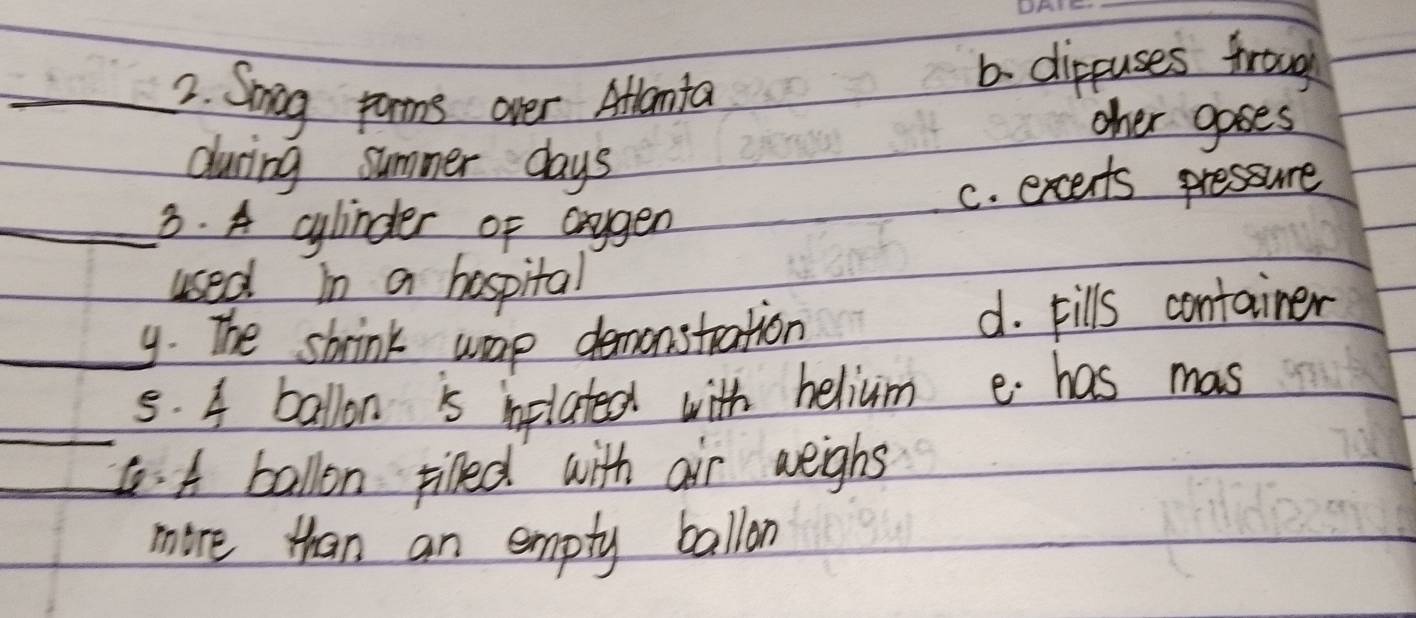 DATE:
2. Smog forms over Atlanta
during summer days
3. A cylinder of oxygen
used in a hospital
4. The shrink wrap demonstration
5. A ballon is inflated with helium
6. A ballon filled with air weighs
more than an empty ballon
b. diffuses through
other gases
c. excerts pressure
d. fills container
e. has mas